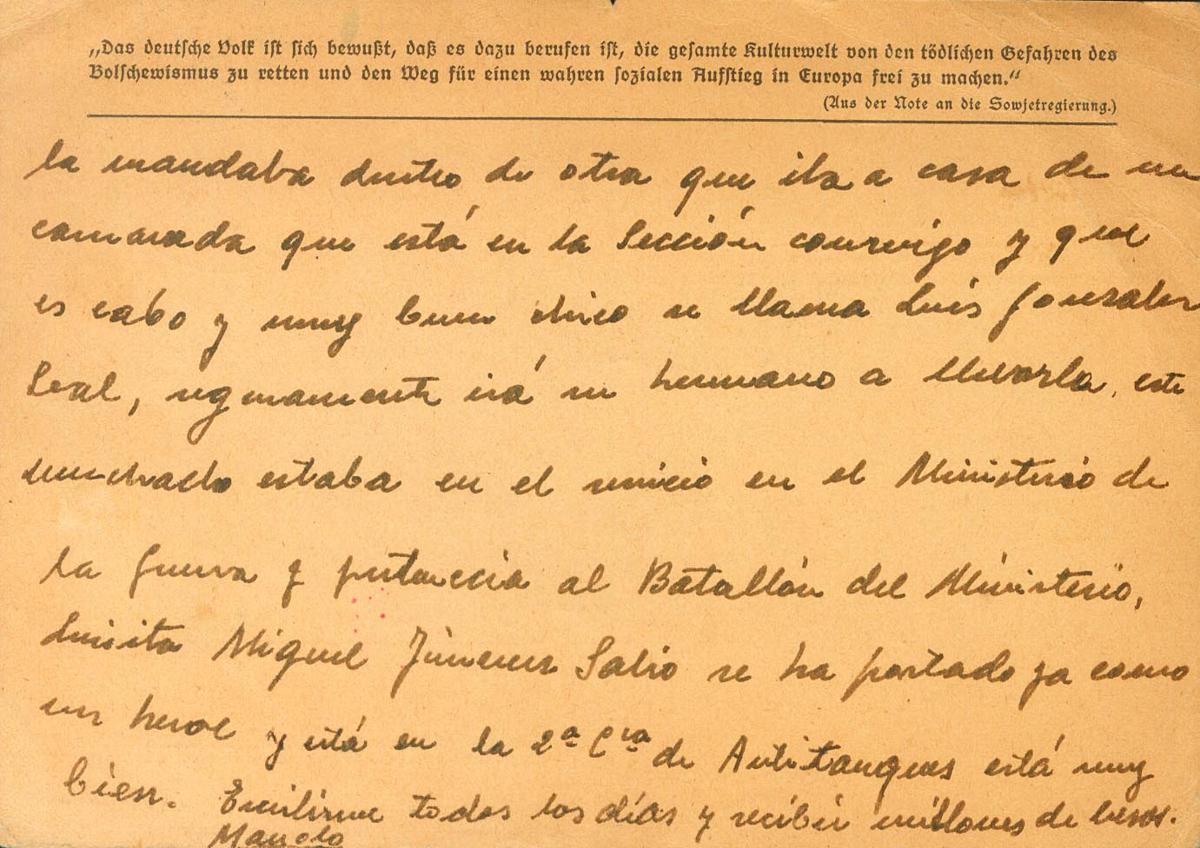 „Das deutsche Volk ist sich bewußt, daß es dazu berufen ist, die gesamte Kulturwelt von den tödlichen Gefahren des
Bolschewismus zu retten und den Weg für einen wahren sozialen Aufstieg in Europa frei zu machen.“
(Aus der Note an die Sowjetregierung.)
la mandaba dentro de otra que iba a casa de un
camarada que está en la Sección conmigo y que
es cabo y muy buen chico se llama Luis Gonzalez
Leal, seguramente irá su hermano a llevarla, este
muchacho estaba en el servicio en el Ministerio de
la Guerra y pertenecia al Batallón del Ministerio,
Luisito Miguel Jimenez Salio se ha portado ya como
un heroe y está en la 2ª Cia de Antitanques está muy
bien. Escribirme todos los días y recibir millones de besos.
Manolo